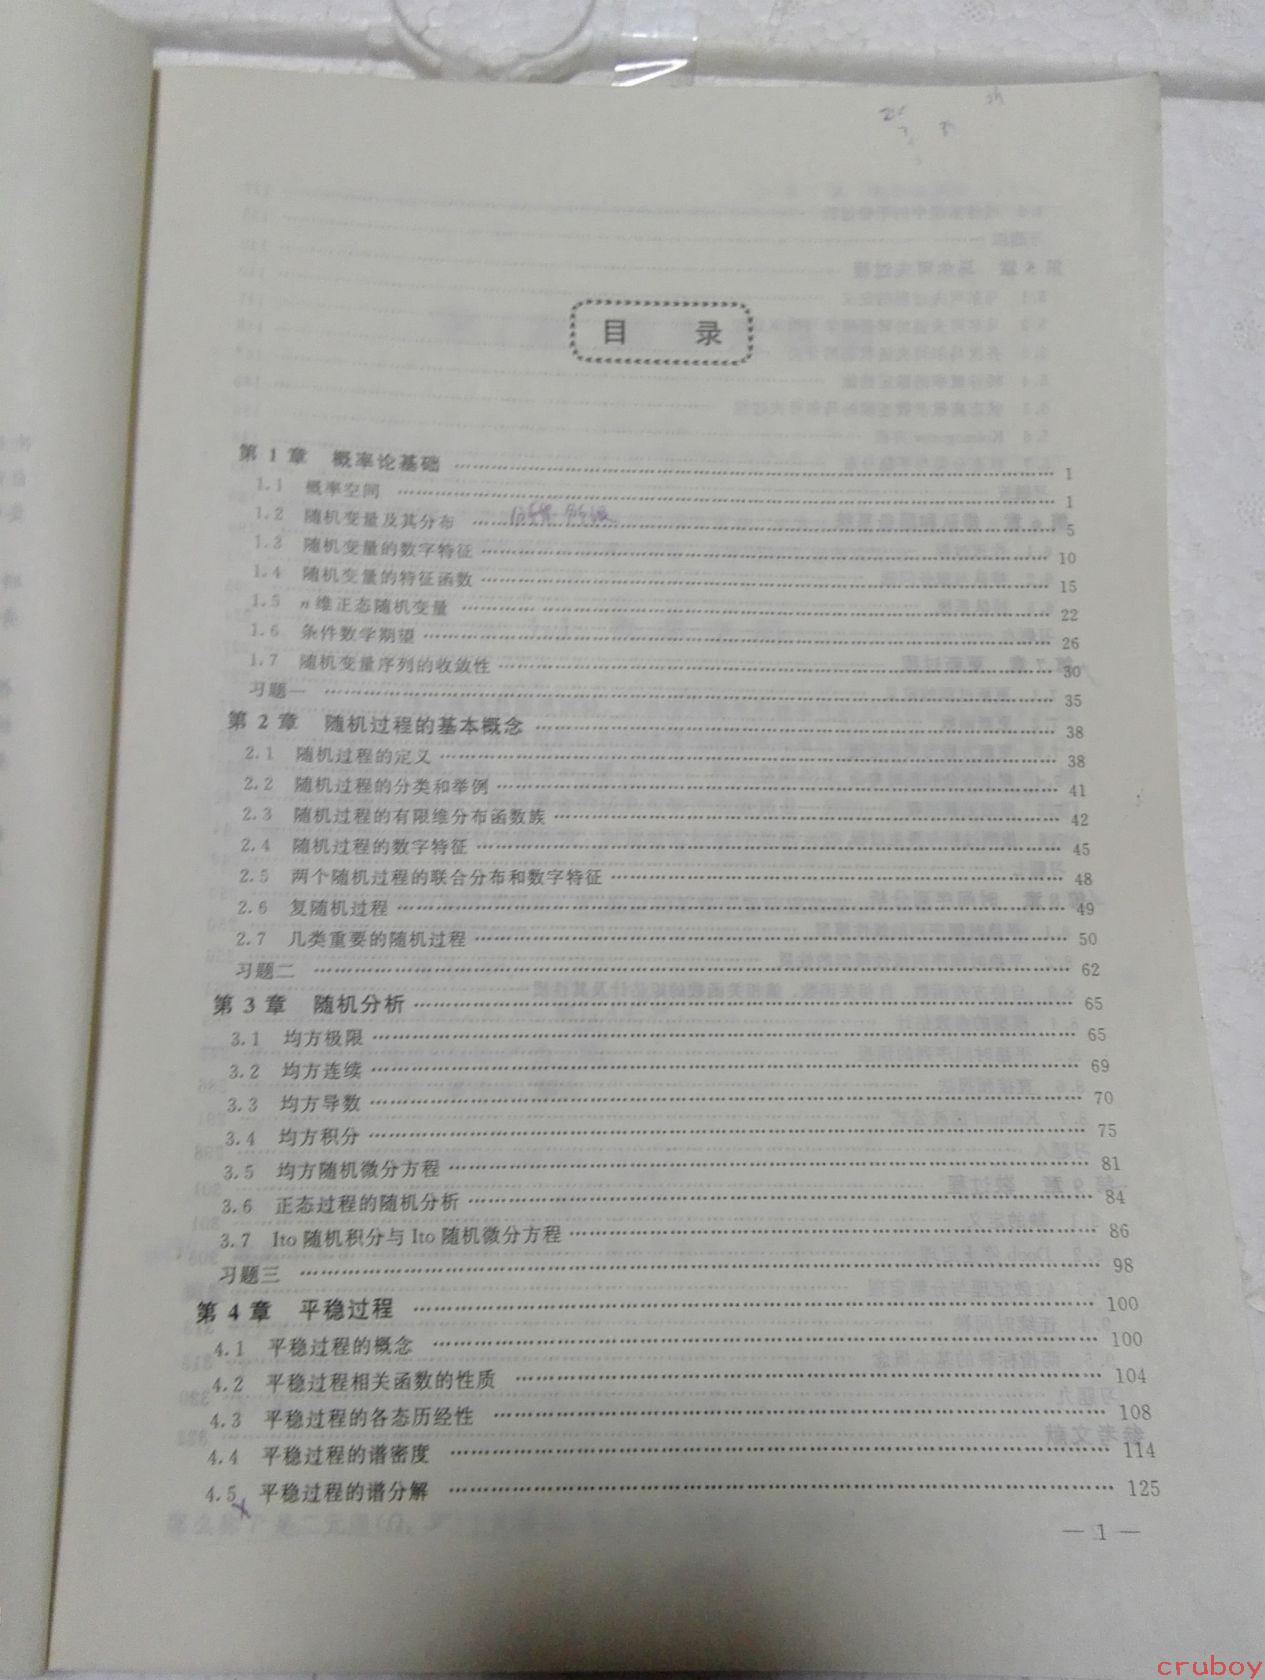 目 录
第 1 章 概率论基础 …… 1
1.1 概率空间 …… 1
1.2 随机变量及其分布 …… 5
1.3 随机变量的数字特征 …… 10
1.4 随机变量的特征函数 …… 15
1.5 n维正态随机变量 …… 22
1.6 条件数学期望 …… 26
1.7 随机变量序列的收敛性 …… 30
习题一 …… 35
第 2 章 随机过程的基本概念 …… 38
2.1 随机过程的定义 …… 38
2.2 随机过程的分类和举例 …… 41
2.3 随机过程的有限维分布函数族 …… 42
2.4 随机过程的数字特征 …… 45
2.5 两个随机过程的联合分布和数字特征 …… 48
2.6 复随机过程 …… 49
2.7 几类重要的随机过程 …… 50
习题二 …… 62
第 3 章 随机分析 …… 65
3.1 均方极限 …… 65
3.2 均方连续 …… 69
3.3 均方导数 …… 70
3.4 均方积分 …… 75
3.5 均方随机微分方程 …… 81
3.6 正态过程的随机分析 …… 84
3.7 Ito 随机积分与 Ito 随机微分方程 …… 86
习题三 …… 98
第 4 章 平稳过程 …… 100
4.1 平稳过程的概念 …… 100
4.2 平稳过程相关函数的性质 …… 104
4.3 平稳过程的各态历经性 …… 108
4.4 平稳过程的谱密度 …… 114
4.5 平稳过程的谱分解 …… 125
— 1 —
cruboy